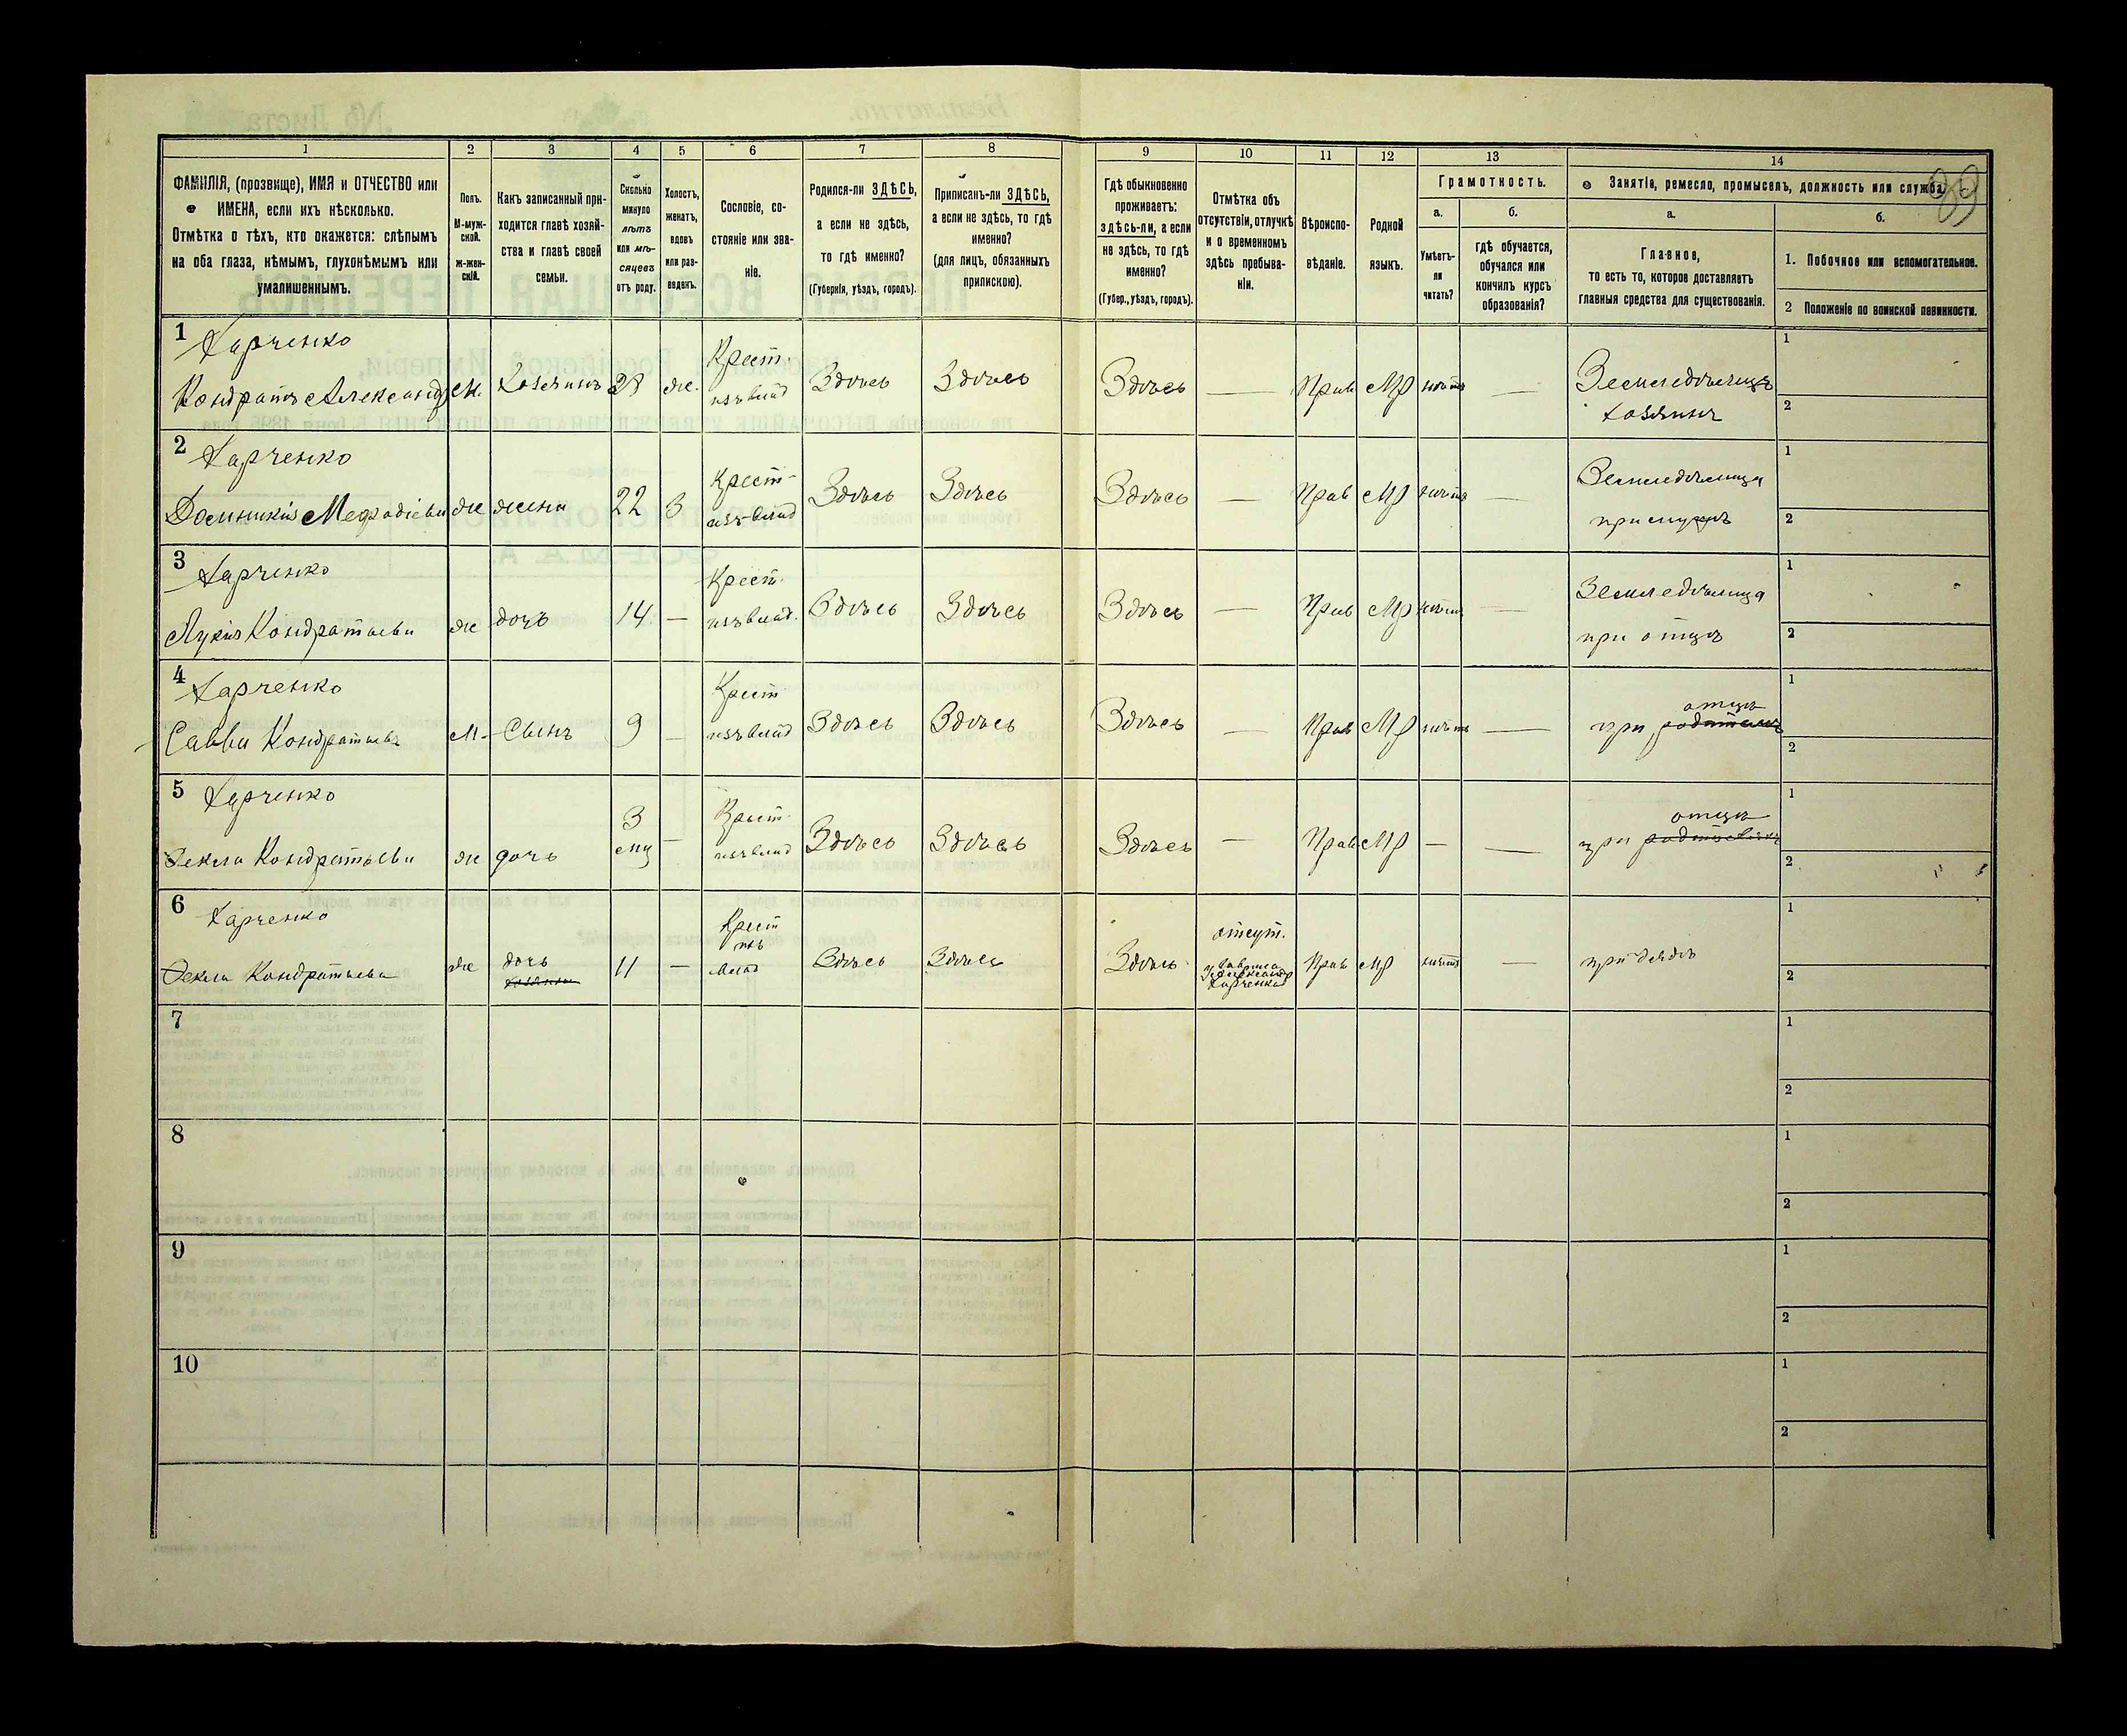 89
1 2 3 4 5 6 7 8 9 10 11 12 13 14
ФАМИЛІЯ, (прозвище), ИМЯ и ОТЧЕСТВО или
ИМЕНА, если ихъ нѣсколько.
Отмѣтка о тѣхъ, кто окажется: слѣпымъ
на оба глаза, нѣмымъ, глухонѣмымъ или
умалишеннымъ.
Полъ.
М-муж-
ской.
Ж-жен-
скій.
Какъ записанный при-
ходится главѣ хозяй-
ства и главѣ своей
семьи.
Сколько
минуло
лѣтъ
или мѣ-
сяцевъ
отъ роду.
Холостъ,
женатъ,
вдовъ
или раз-
веденъ.
Сословіе, со-
стояніе или зва-
ніе.
Родился-ли ЗДѢСЬ,
а если не здѣсь,
то гдѣ именно?
(Губернія, уѣздъ, городъ).
Приписанъ-ли ЗДѢСЬ,
а если не здѣсь, то гдѣ
именно?
(для лицъ, обязанныхъ
припискою).
Гдѣ обыкновенно
проживаетъ:
здѣсь-ли, а если
не здѣсь, то гдѣ
именно?
(Губер., уѣздъ, городъ).
Отмѣтка объ
отсутствіи, отлучкѣ
и о временномъ
здѣсь пребыва-
ніи.
Вѣроиспо-
вѣданіе.
Родной
языкъ.
Грамотность.
а.
Умѣетъ-
ли
читать?
б.
гдѣ обучается,
обучался или
кончилъ курсъ
образованія?
Занятіе, ремесло, промыселъ, должность или служба.
а.
Главное,
то есть то, которое доставляетъ
главныя средства для существованія.
б.
1. Побочное или вспомогательное.
2 Положеніе по воинской повинности.
1 Харченко Крест. 1
Кондратъ Александр м. Хозяинъ ж. изъ влад Здѣсь Здѣсь Здѣсь — Прав МР нѣтъ — Земледѣлецъ
хозяинъ 2
2 Харченко Крест- 1
Домникія Мефодіева ж жена 22 З изъ влад Здѣсь Здѣсь Здѣсь — Прав МР нѣтъ — Земледѣлица
при мужѣ 2
3 Харченко Крест. 1
Лукія Кондратьева ж дочь 14 — изъ влад. Здѣсь Здѣсь Здѣсь — Прав МР нѣтъ — Земледѣлица
при отцѣ 2
4 Харченко Крест 1
Савва Кондратьевъ М- Сынъ 9 — изъ влад Здѣсь Здѣсь Здѣсь — Прав МР нѣтъ — отцѣ
при 2
5 Харченко 3 Крест. 1
Текла Кондратьева ж дочь мц — изъ влад Здѣсь Здѣсь Здѣсь — Прав МР — — отцѣ
при 2
6 Харченко Крест отсут. 1
изъ
Текла Кондратьева ж дочь 11 — влад Здѣсь Здѣсь Здѣсь Прав МР нѣтъ — при дядѣ
Харченка 2
7 1
2
8 1
2
9 1
2
10 1
2